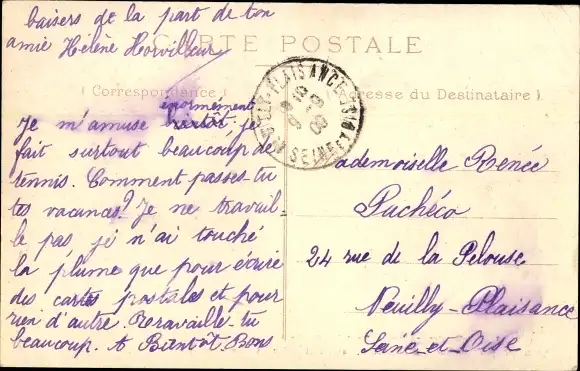 baisers de la part de ton
amie Hélène Horvilleur
CARTE POSTALE
( Correspondance )
Adresse du Destinataire )
énormément
Je m'amuse bientôt, je
fait surtout beaucoup de
tennis. Comment passes-tu
tes vacances? Je ne travail
le pas je n'ai touché
la plume que pour écrire
des cartes postales et pour
rien d'autre. Travaille-tu
beaucoup. A Bientôt. Bons
NEUILLY-PLAISANCE
SEINE-ET-OISE
Mademoiselle Renée
Pachéco
24 rue de la Pelouse
Neuilly-Plaisance
Seine-et-Oise